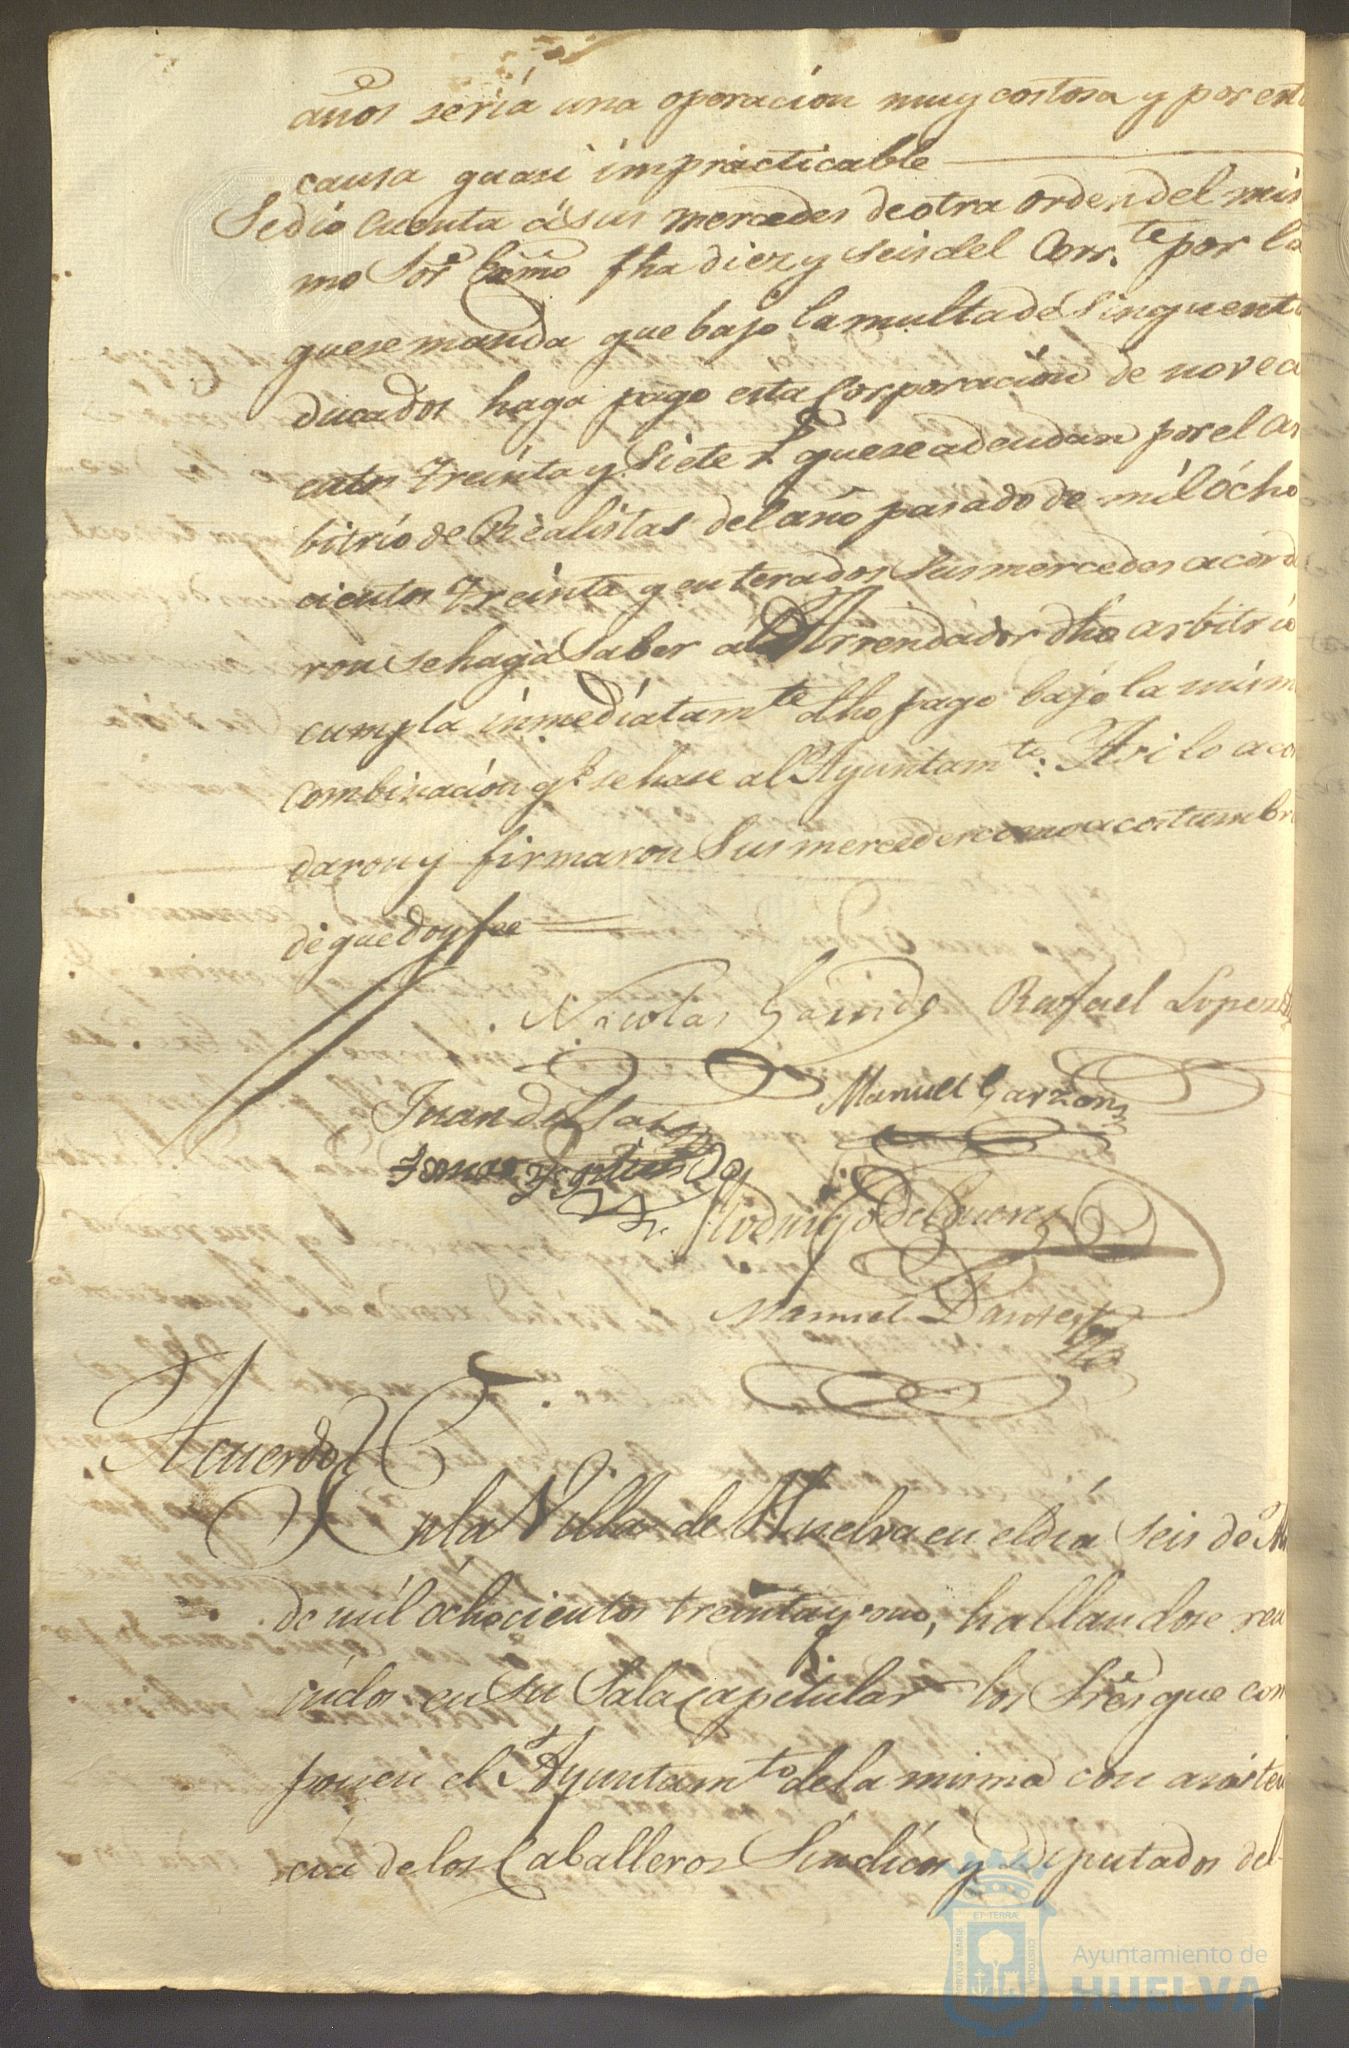 años sería una operacion muy costosa y por esta
causa quasi impracticable
Se dio cuenta á sus mercedes de otra orden del mis
mo Sor fha diez y seis del Corr.te por la
que se manda que bajo la multa de Sinquenta
ducados haga pago esta Corporacion de noveci
entos treinta y siete que se adeudan por el ar
bitrio de Realistas del año pasado de mil ocho
cientos treinta y enterados sus mercedes acorda
ron se haga saber al Arrendador dho arbitrio
cumpla inmediatam.te dho pago bajo la misma
combinación q.e se hase al Ayuntam.to: Asi lo acor
daron y firmaron Sus mercedes como acostumbran
de que doy fee
Nicolas Galindo Rafael Lopez
Juan de Manuel Garzon
Rodrigo de
Manuel
Acuerdo
En la Villa de Huelva en el dia seis de
de mil ochocientos treinta y uno, hallandose reu
nidos en su Sala Capitular los Sres que com
ponen el Ayuntam.to de la misma con asisten
cia de los Caballeros Sindicos y Diputados del
ET TERRA
CUSTODIA
Ayuntamiento de
HUELVA